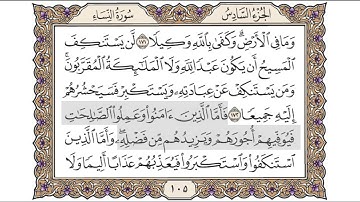 الجزء السادس
سورة النساء
وَمَا فِي ٱلۡأَرۡضِۗ وَكَفَىٰ بِٱللَّهِ وَكِيلٗا ١٧١ لَّن يَسۡتَنكِفَ
ٱلۡمَسِيحُ أَن يَكُونَ عَبۡدٗا لِّلَّهِ وَلَا ٱلۡمَلَٰٓئِكَةُ ٱلۡمُقَرَّبُونَۚ
وَمَن يَسۡتَنكِفۡ عَنۡ عِبَادَتِهِۦ وَيَسۡتَكۡبِرۡ فَسَيَحۡشُرُهُمۡ
إِلَيۡهِ جَمِيعٗا ١٧٢ فَأَمَّا ٱلَّذِينَ ءَامَنُواْ وَعَمِلُواْ ٱلصَّٰلِحَٰتِ
فَيُوَفِّيهِمۡ أُجُورَهُمۡ وَيَزِيدُهُم مِّن فَضۡلِهِۦۖ وَأَمَّا ٱلَّذِينَ
ٱسۡتَنكَفُواْ وَٱسۡتَكۡبَرُواْ فَيُعَذِّبُهُمۡ عَذَابًا أَلِيمٗا وَلَا
١٠٥